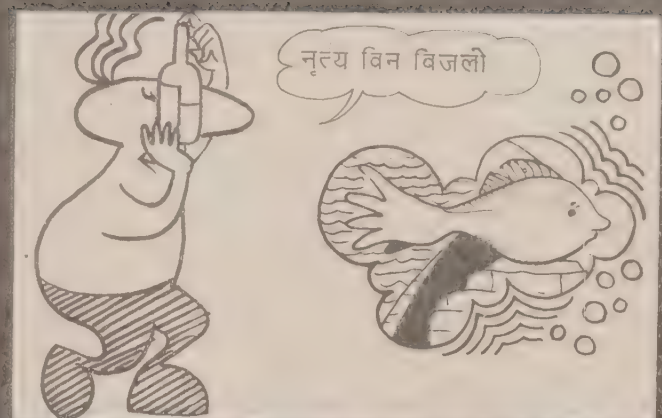 नृत्य विन विजली